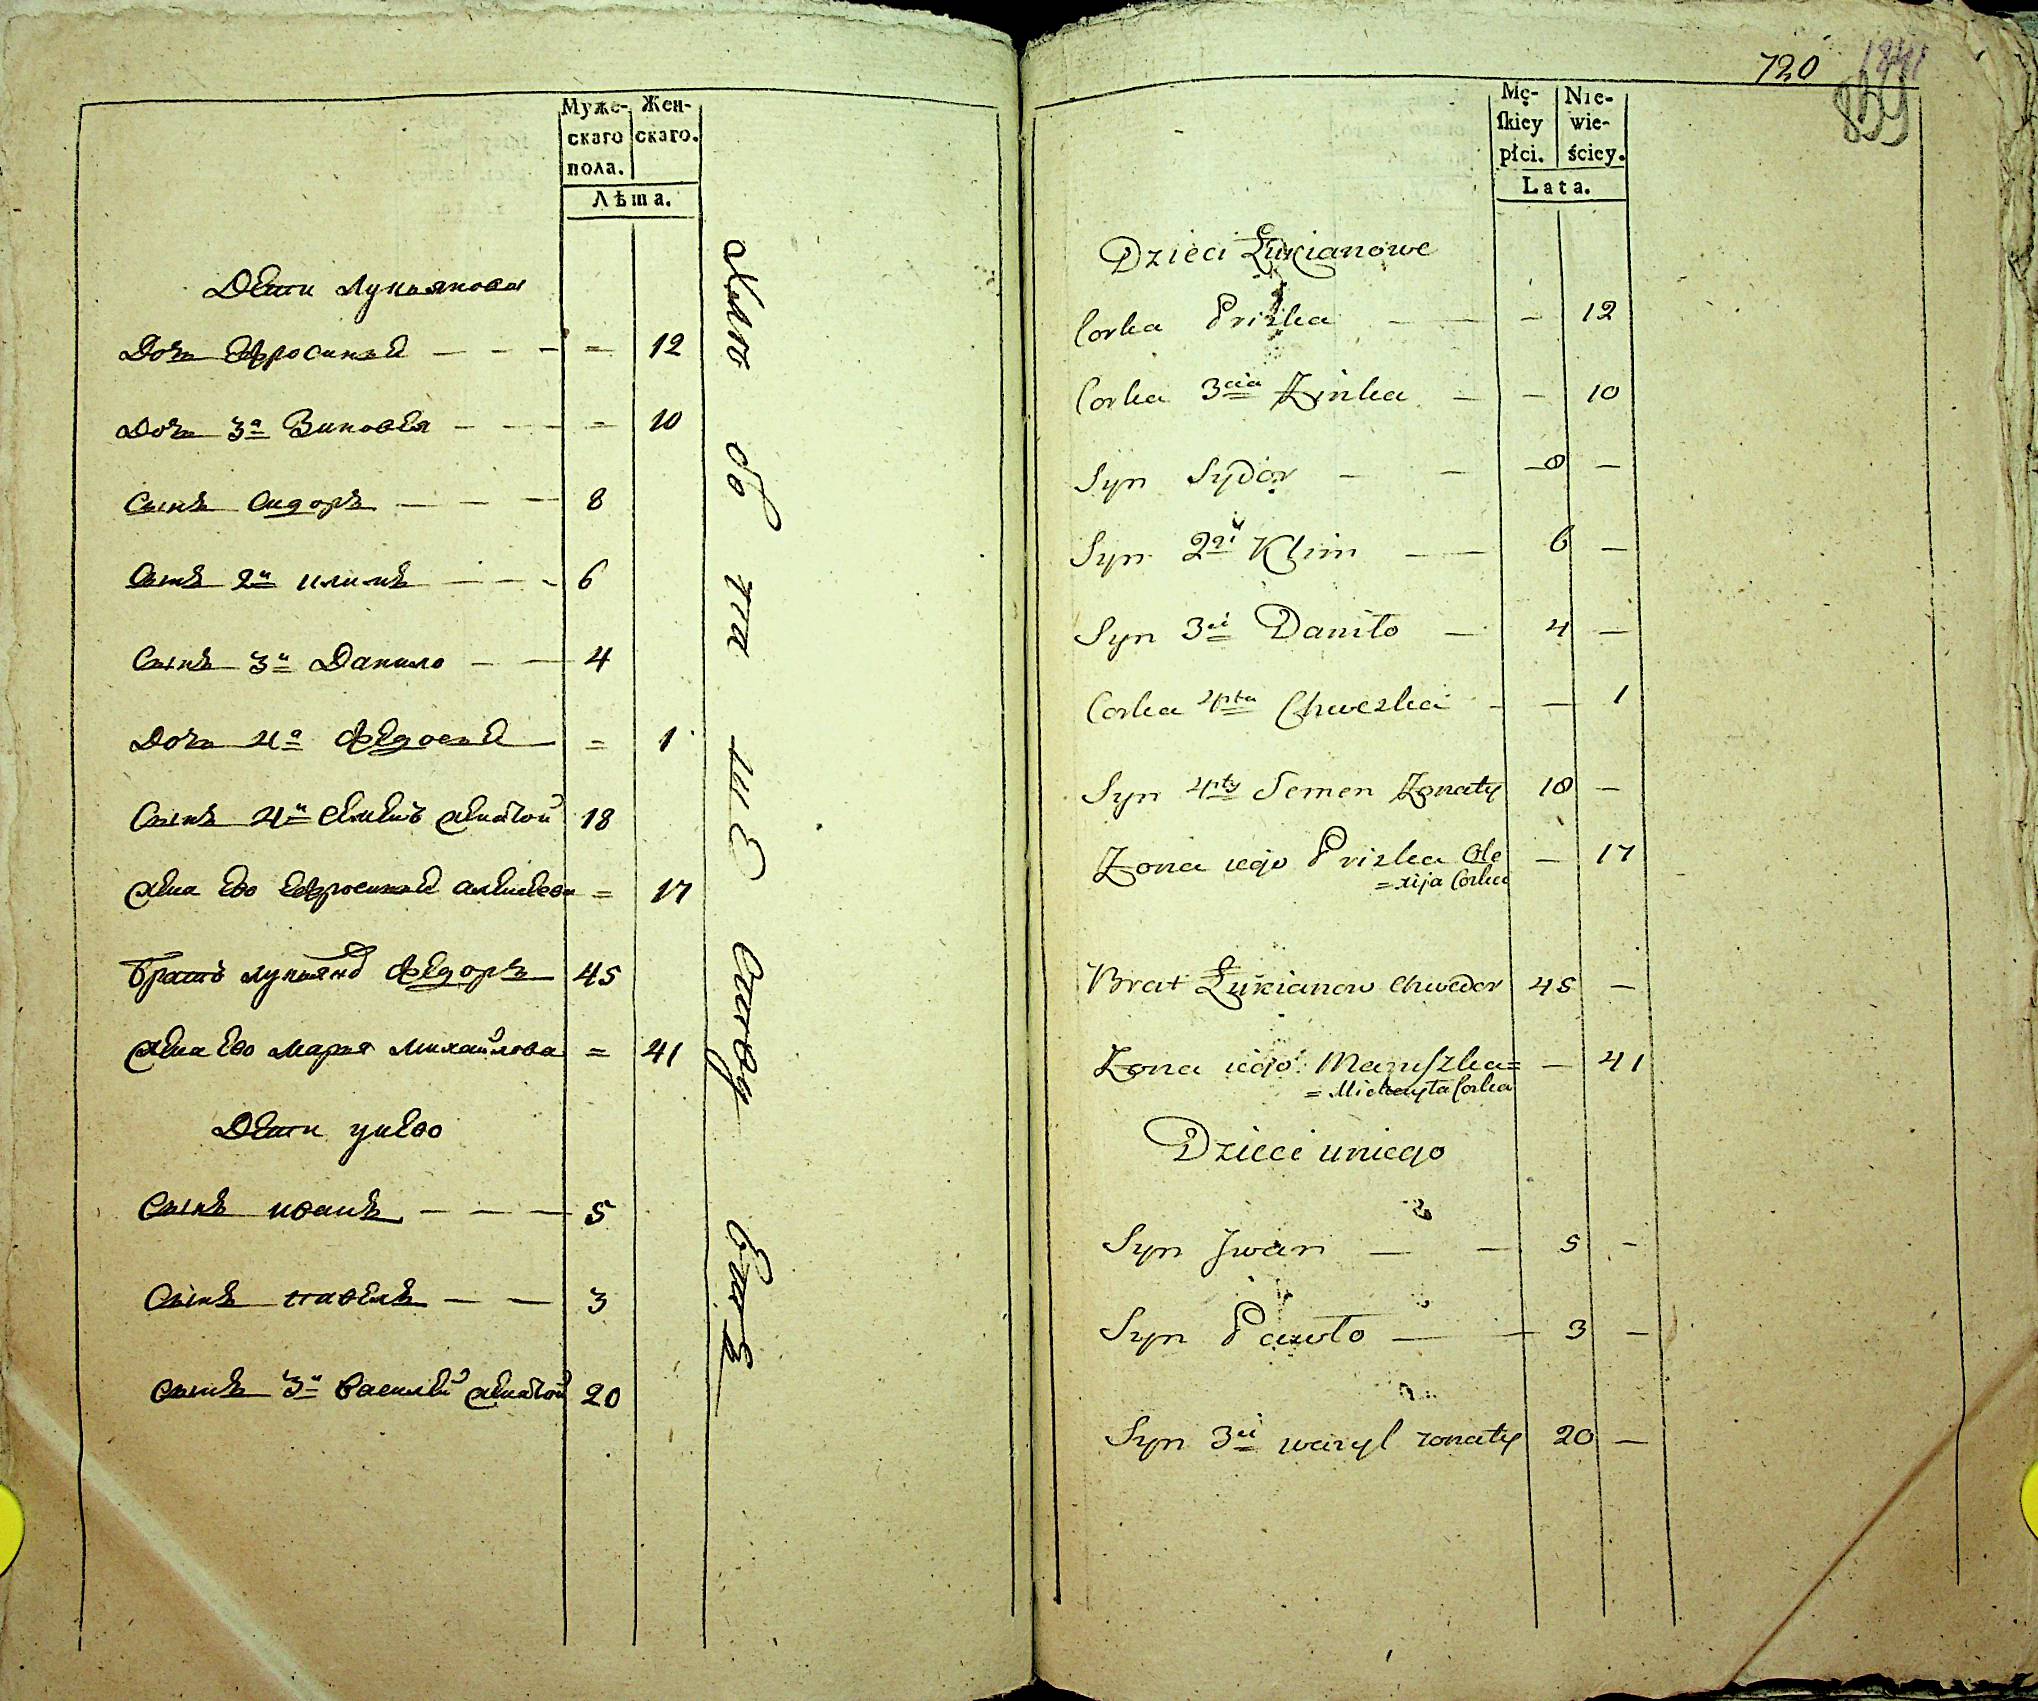 Муже-
скаго
пола.
Жен-
скаго.
Лѣта.
Дети лукьяновы
Дочь Ефросинья — — — = 12
Дочь 3а Зиновея — — — = 10
Сынъ Сидоръ — — — 8
Сынъ 2й климъ — — — 6
Сынъ 3й Данило — — 4
Дочь 4а Федосья = 1
Сынъ 4й женатой 18
жена Ево Ефросинья = 17
братъ лукьяна Федоръ 45
жена Ево Марья Михайлова = 41
Дети унево
Сынъ иванъ — — — 5
Сынъ павелъ — — 3
Сынъ 3й василей женатой 20
720
Mę-
ſkiey
płci.
Nie-
wie-
ściey.
Lata.
Dzieci Łukianowe
Corka Priśka — — — 12
Corka 3cia Zinka — — 10
Syn Sydor — — 8 —
Syn 2gi Klim — — 6 —
Syn 3ci Daniło — 4 —
Corka 4rta Chweśka — — 1
Syn 4rty Semen Żonaty 18 —
Żona iego Priśka Ole — 17
=xija Corka
Brat Łukianow Chwedor 45 —
Żona iego Maruſzka= — 41
= Michayła Corka
Dzieci uniego
Syn Jwan — — 5 —
Syn Pawło — — 3 —
Syn 3ci wasyl zonaty 20 —